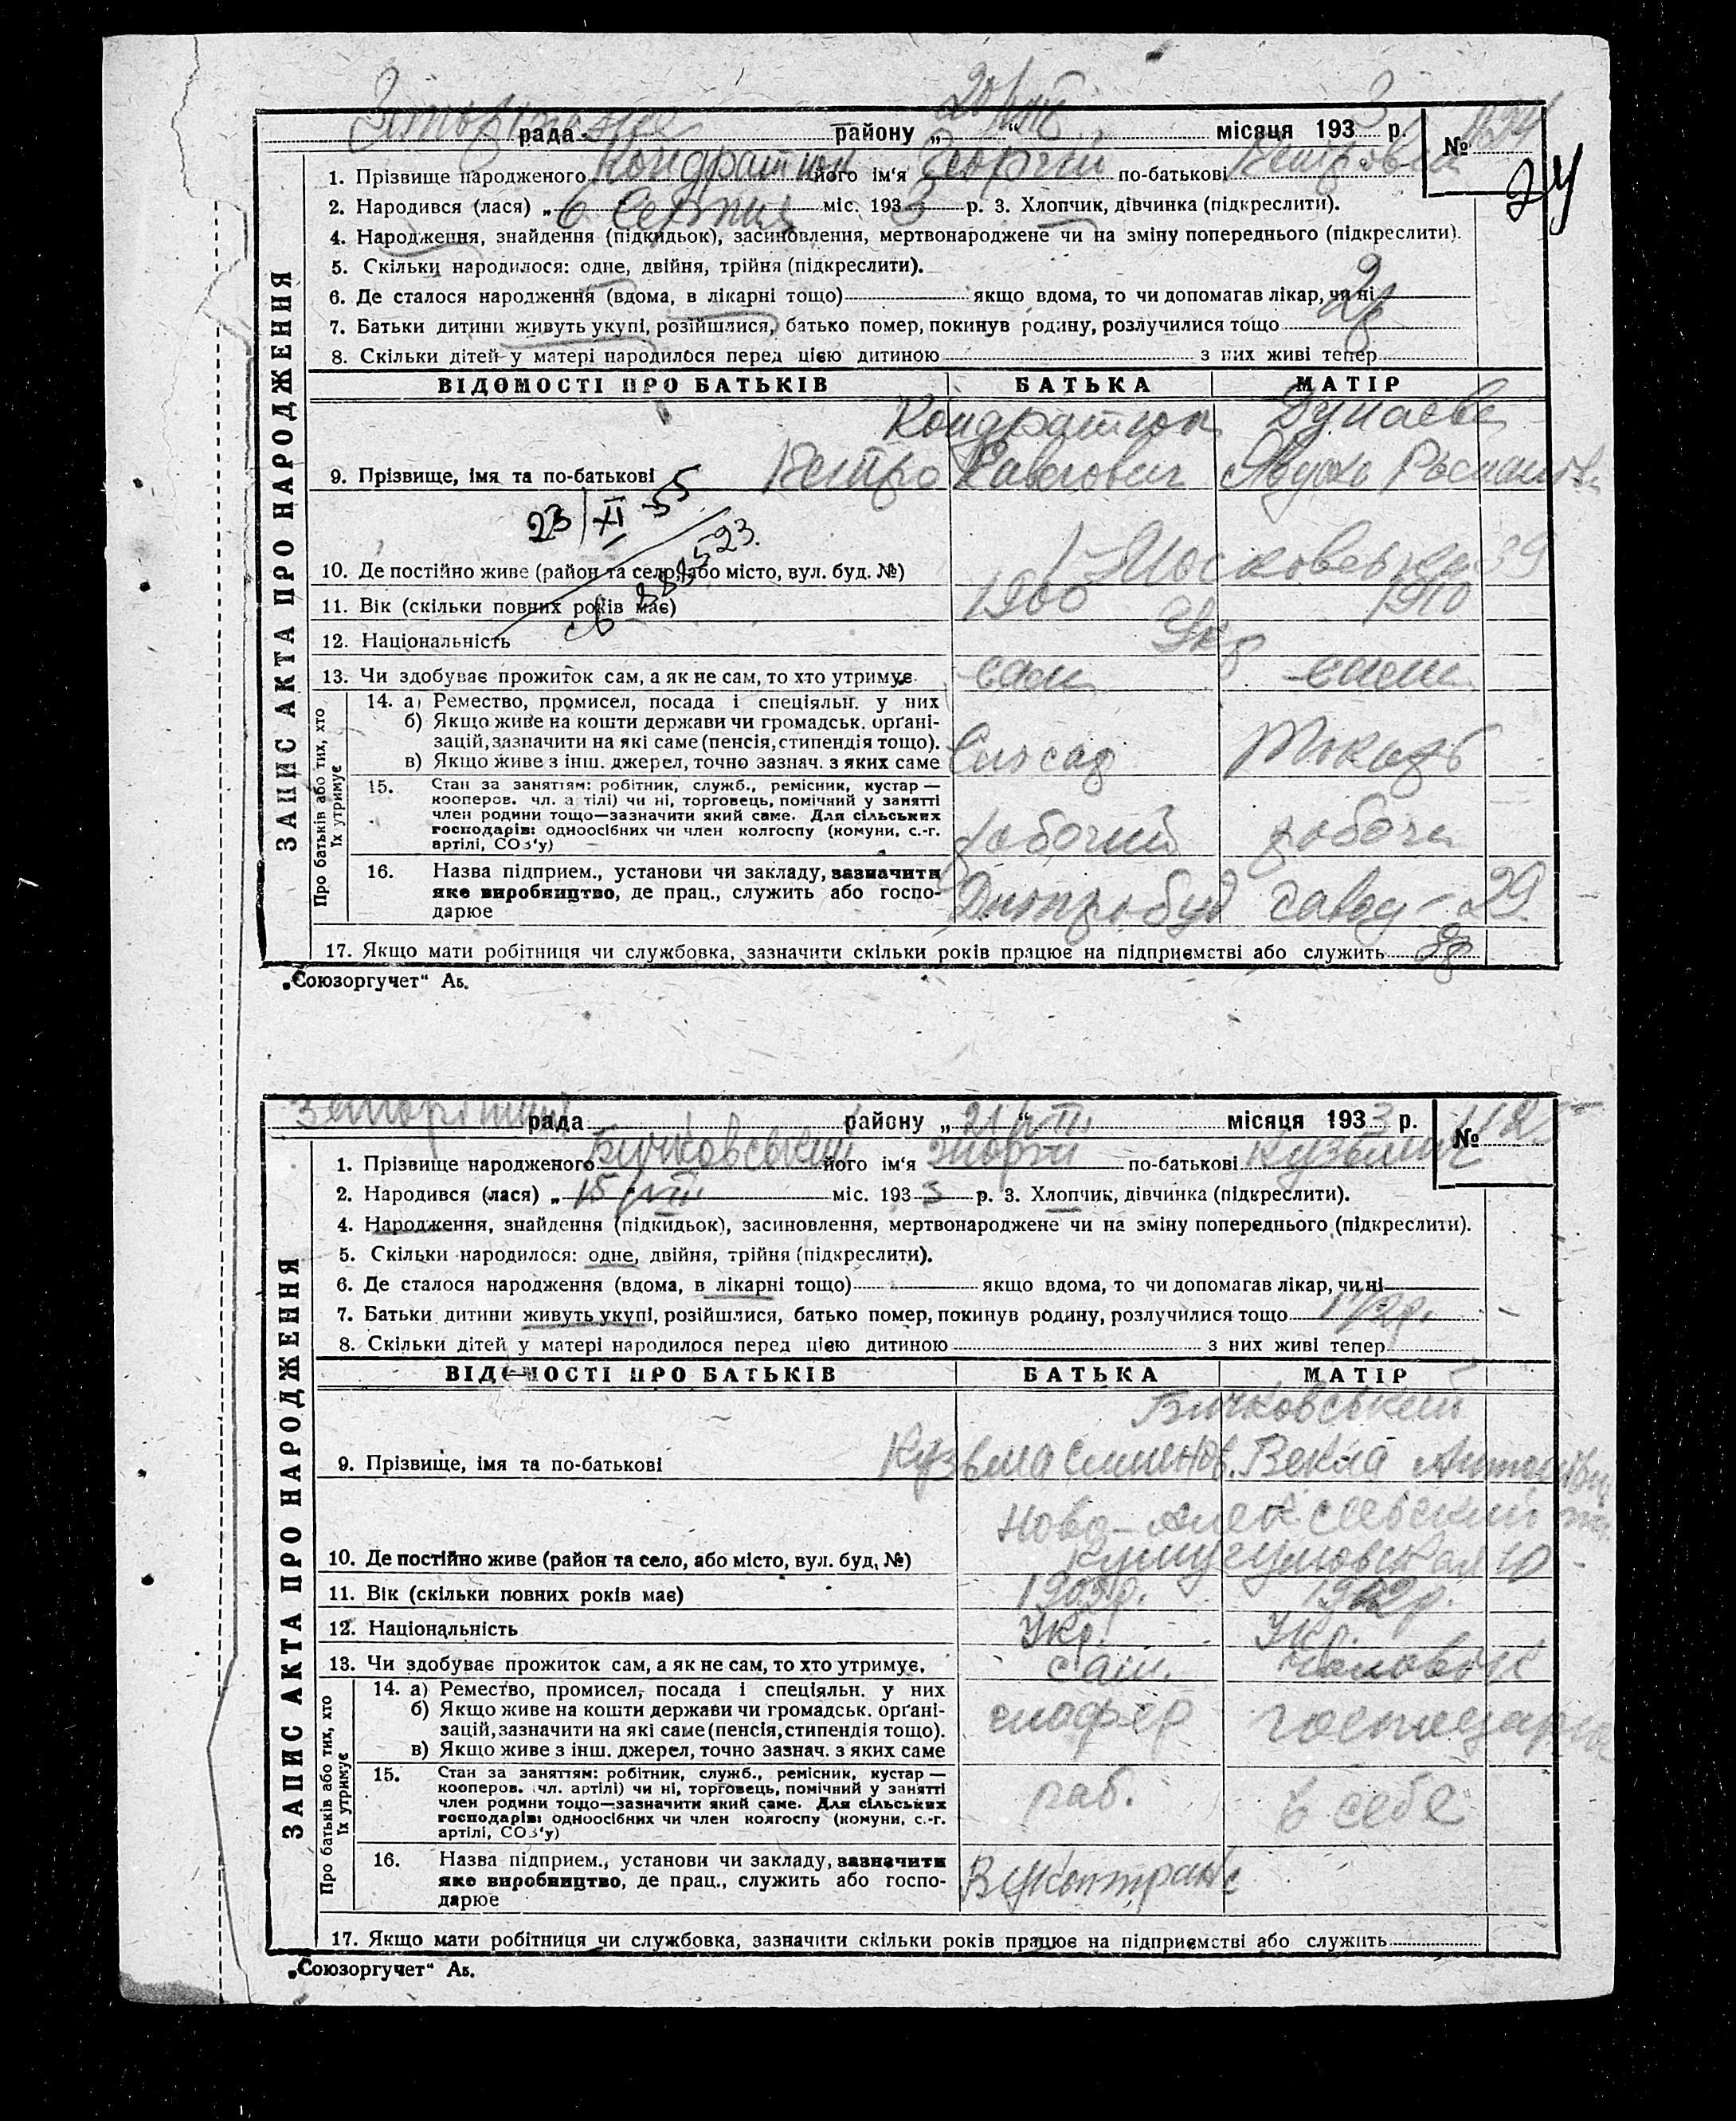 ЗАПИС АКТА ПРО НАРОДЖЕННЯ
рада району „20/VIII“ місяця 1933 р. №
1. Прізвище народженого Кондратюк його ім‘я Георгій по-батькові Петрович
2. Народився (лася) „6 Серпня міс. 1933 р. 3. Хлопчик, дівчинка (підкреслити).
4. Народження, знайдення (підкидьок), засиновлення, мертвонароджене чи на зміну попереднього (підкреслити).
5. Скільки народилося: одне, двійня, трійня (підкреслити).
6. Де сталося народження (вдома, в лікарні тощо) якщо вдома, то чи допомагав лікар, чи ні
7. Батьки дитини живуть укупі, розійшлися, батько помер, покинув родину, розлучилися тощо 2р
8. Скільки дітей у матері народилося перед цією дитиною з них живі тепер
ВІДОМОСТІ ПРО БАТЬКІВ БАТЬКА МАТІР
Кондратюк Дунаєва
9. Прізвище, імя та по-батькові Петро Савович
23/XI 55
10. Де постійно живе (район та село, або місто, вул. буд. №) Московська 39
11. Вік (скільки повних років має) 1900 1910
12. Національність Укр
13. Чи здобуває прожиток сам, а як не сам, то хто утримує сам сама
Про батьків або тих, хто їх утримує
14. а) Ремество, промисел, посада і спеціяльн. у них
б) Якщо живе на кошти держави чи громадськ. орґані-
зацій, зазначити на які саме (пенсія, стипендія тощо).
в) Якщо живе з інш. джерел, точно зазнач. з яких саме Слюсар Токарь
15. Стан за заняттям: робітник, служб., ремісник, кустар —
кооперов. чл. артілі) чи ні, торговець, помічний у занятті
член родини тощо—зазначити який саме. Для сільських
господарів: одноосібних чи член колгоспу (комуни, с.-г.
артілі, СОЗ‘у) робочий робоча
16. Назва підприєм., установи чи закладу, зазначити
яке виробництво, де прац., служить або госпо-
дарюе Дніпробуд завод – 29
17. Якщо мати робітниця чи службовка, зазначити скільки років працює на підприємстві або служить
„Союзоргучет“ Аб.
ЗАПИС АКТА ПРО НАРОДЖЕННЯ
рада району „21/VIII“ місяця 1933 р. №
1. Прізвище народженого Бичковський його ім‘я Жорж по-батькові Кузьмич
2. Народився (лася) „15/VIII міс. 1933 р. 3. Хлопчик, дівчинка (підкреслити).
4. Народження, знайдення (підкидьок), засиновлення, мертвонароджене чи на зміну попереднього (підкреслити).
5. Скільки народилося: одне, двійня, трійня (підкреслити).
6. Де сталося народження (вдома, в лікарні тощо) якщо вдома, то чи допомагав лікар, чи ні
7. Батьки дитини живуть укупі, розійшлися, батько помер, покинув родину, розлучилися тощо
8. Скільки дітей у матері народилося перед цією дитиною з них живі тепер
ВІДОМОСТІ ПРО БАТЬКІВ БАТЬКА МАТІР
Бичковський
9. Прізвище, імя та по-батькові Кузьма Векла
Ново-Алексеевский
10. Де постійно живе (район та село, або місто, вул. буд. №) Кушугумовская 10
11. Вік (скільки повних років має) 1909р.
12. Національність Укр. Укр.
13. Чи здобуває прожиток сам, а як не сам, то хто утримує. сам. чоловік
Про батьків або тих, хто їх утримує
14. а) Ремество, промисел, посада і спеціяльн. у них
б) Якщо живе на кошти держави чи громадськ. орґані-
зацій, зазначити на які саме (пенсія, стипендія тощо).
в) Якщо живе з інш. джерел, точно зазнач. з яких саме шофер
15. Стан за заняттям: робітник, служб., ремісник, кустар —
кооперов. чл. артілі) чи ні, торговець, помічний у занятті
член родини тощо—зазначити який саме. Для сільських
господарів: одноосібних чи член колгоспу (комуни, с.-г.
артілі, СОЗ‘у) раб. в себе
16. Назва підприєм., установи чи закладу, зазначити
яке виробництво, де прац., служить або госпо-
дарюе
17. Якщо мати робітниця чи службовка, зазначити скільки років працює на підприємстві або служить
„Союзоргучет“ Аб.